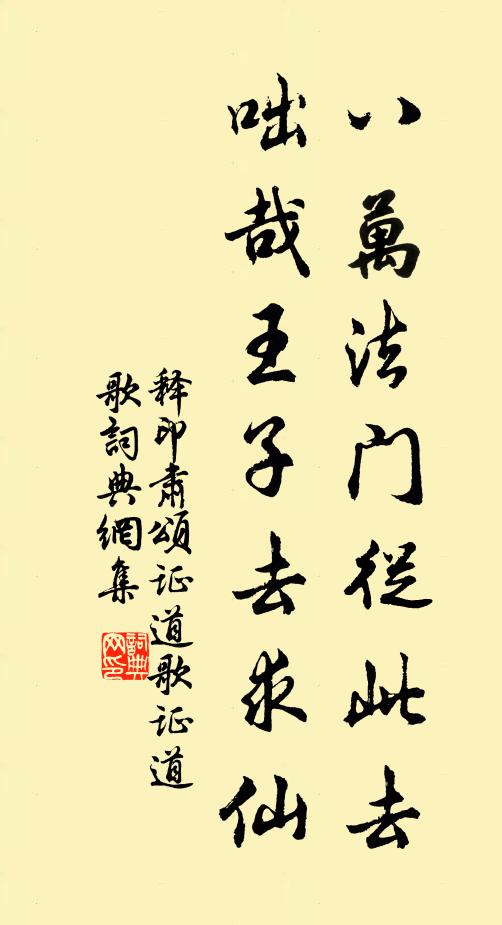 八萬法門從此去
咄哉王子去求仙
释印肃頌证道歌证道
歌詞典網集
詞典网印